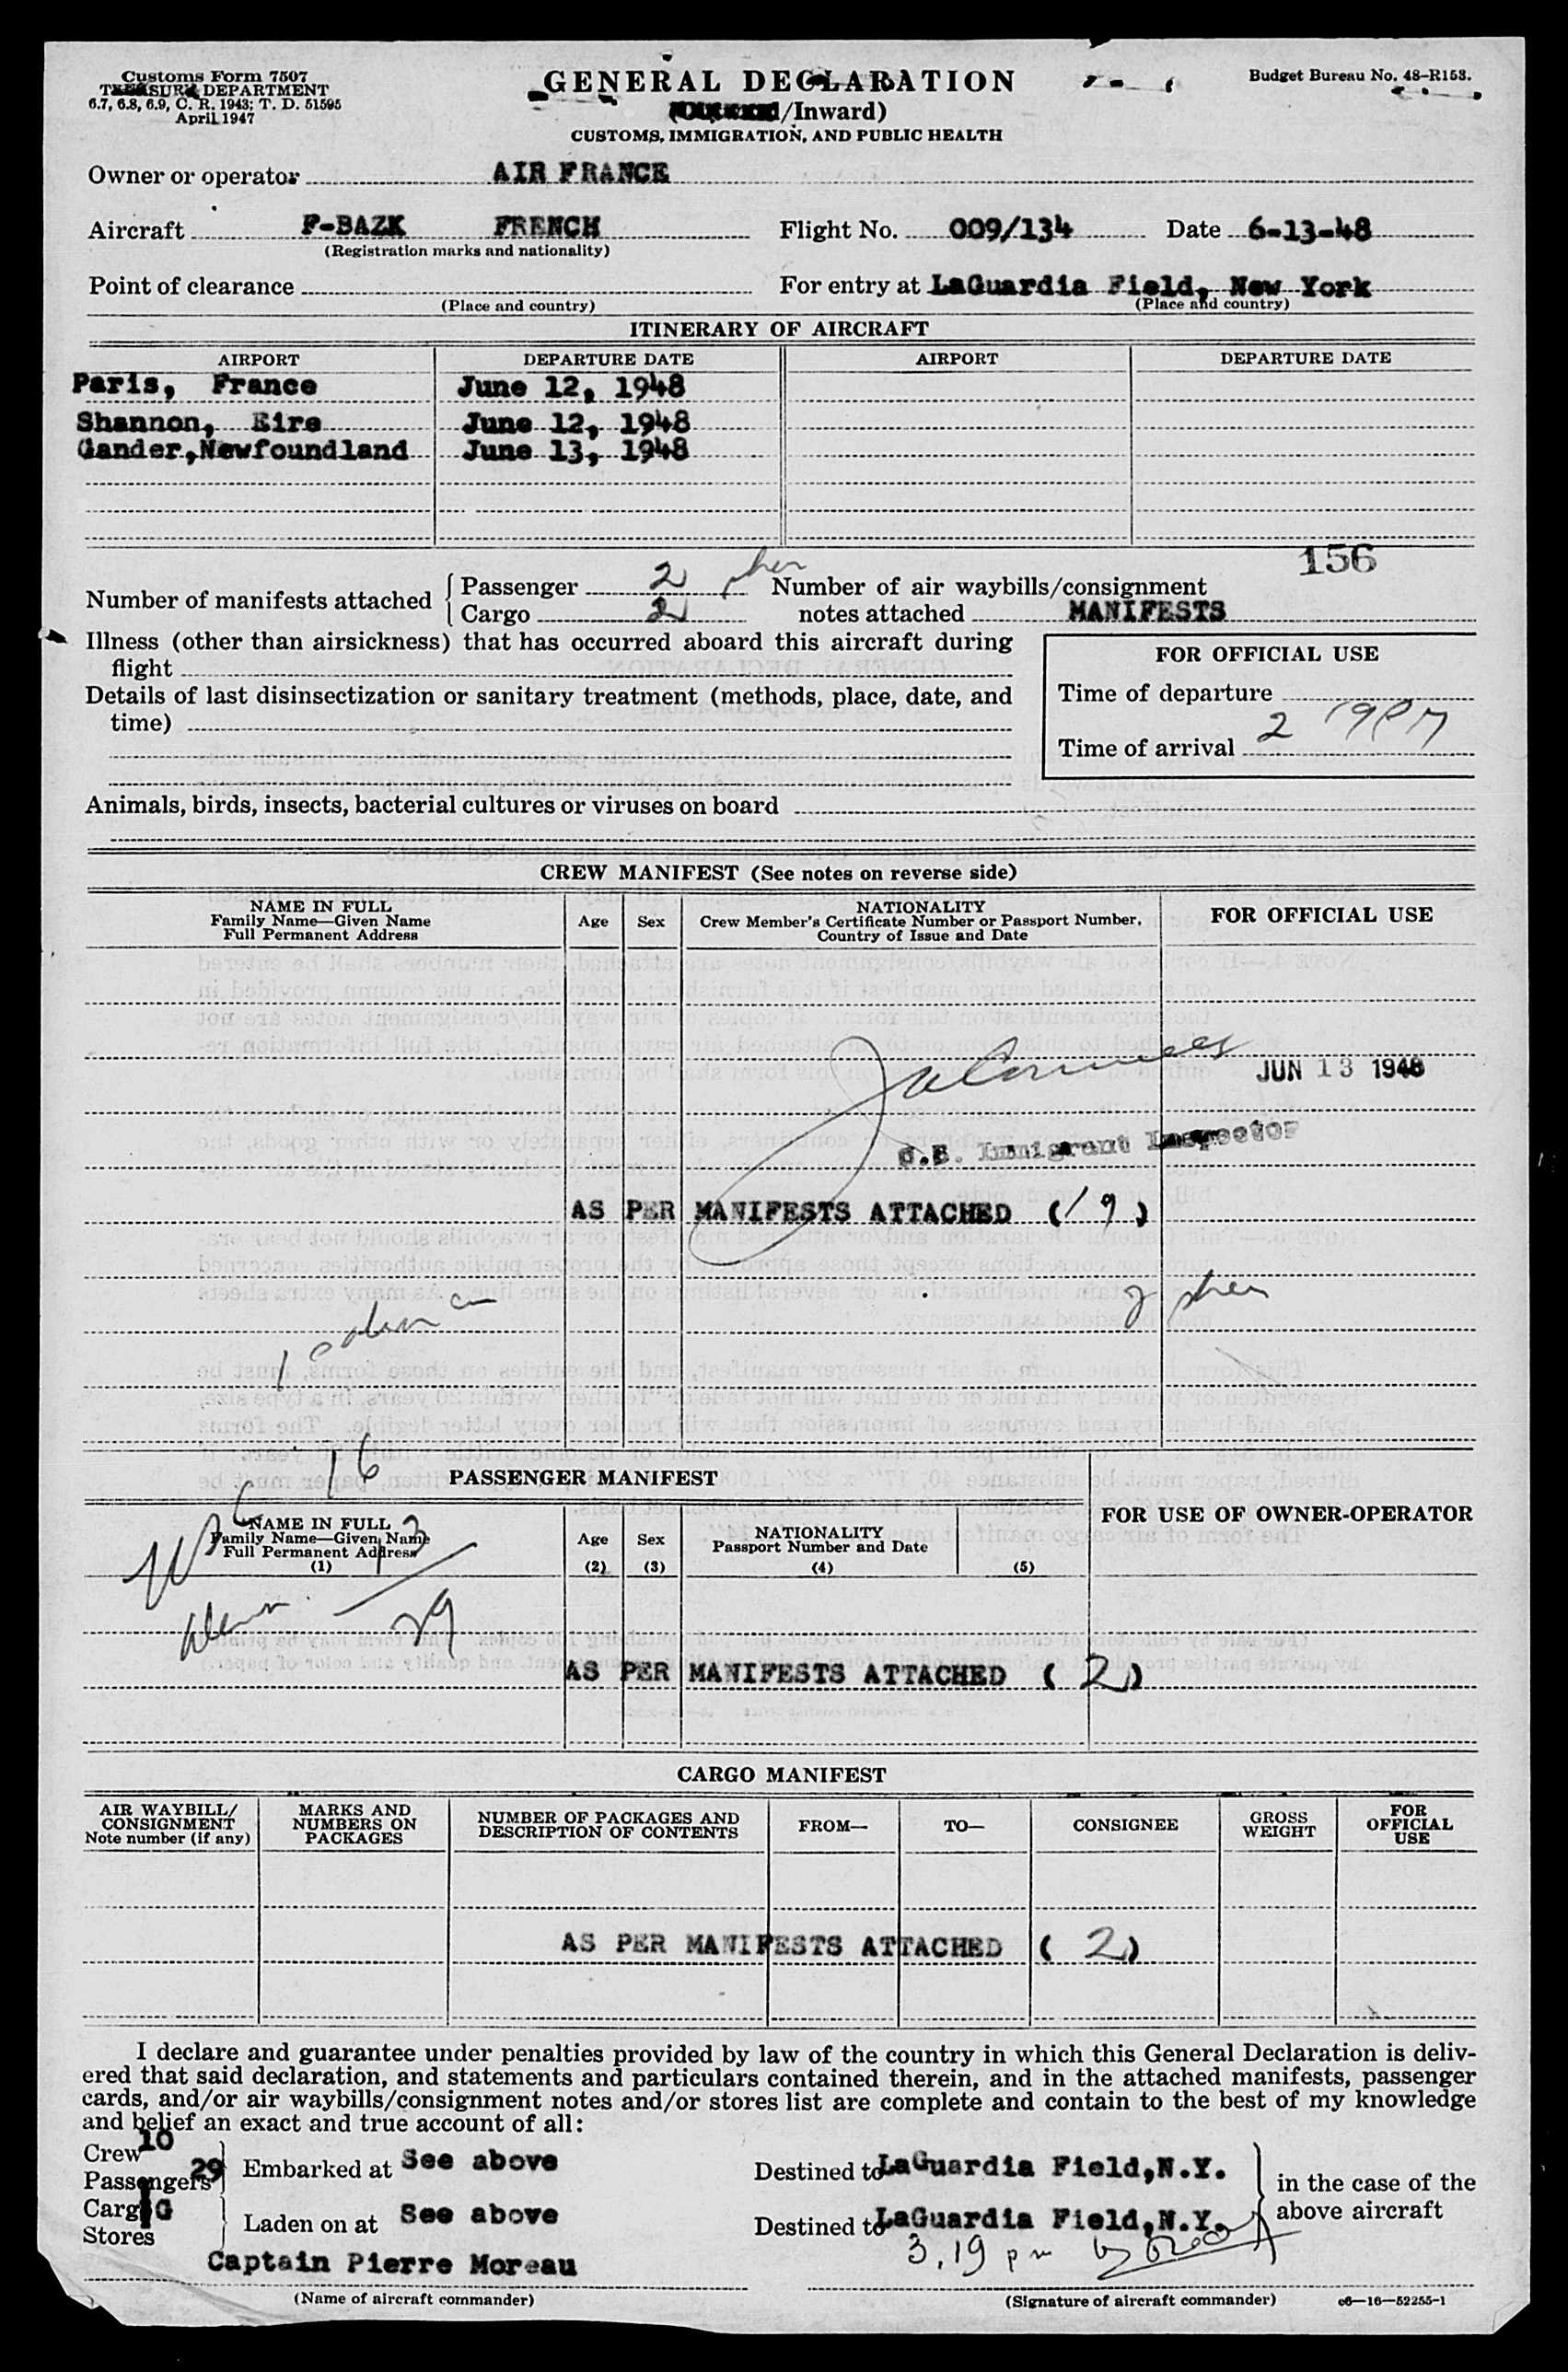 Customs Form 7507
TREASURY DEPARTMENT
6.7, 6.8, 6.9, C. R. 1943; T. D. 51595
April 1947
GENERAL DECLARATION
/Inward)
CUSTOMS, IMMIGRATION, AND PUBLIC HEALTH
Budget Bureau No. 48-R153.
Owner or operator AIR FRANCE
Aircraft F-BAZK FRENCH Flight No. 009/134 Date 6-13-48
(Registration marks and nationality)
Point of clearance For entry at LaGuardia Field, New York
(Place and country) (Place and country)
ITINERARY OF AIRCRAFT
AIRPORT DEPARTURE DATE AIRPORT DEPARTURE DATE
Paris, France June 12, 1948
Shannon, Eire June 12, 1948
Gander,Newfoundland June 13, 1948
156
Number of manifests attached { Passenger 2 Number of air waybills/consignment
Cargo 2 notes attached MANIFESTS
Illness (other than airsickness) that has occurred aboard this aircraft during
flight
Details of last disinsectization or sanitary treatment (methods, place, date, and
time)
FOR OFFICIAL USE
Time of departure
Time of arrival 2 19PM
Animals, birds, insects, bacterial cultures or viruses on board
CREW MANIFEST (See notes on reverse side)
NAME IN FULL
Family Name—Given Name
Full Permanent Address
Age Sex
NATIONALITY
Crew Member's Certificate Number or Passport Number,
Country of Issue and Date
FOR OFFICIAL USE
JUN 13 1948
U.S. Immigrant Inspector
AS PER MANIFESTS ATTACHED (19)
2
1
16
PASSENGER MANIFEST
FOR USE OF OWNER-OPERATOR
USC
NAME IN FULL
Family Name—Given Name
Full Permanent Address
(1)
Age
(2)
Sex
(3)
NATIONALITY
Passport Number and Date
(4) (5)
13
29
AS PER MANIFESTS ATTACHED (2)
CARGO MANIFEST
AIR WAYBILL/
CONSIGNMENT
Note number (if any)
MARKS AND
NUMBERS ON
PACKAGES
NUMBER OF PACKAGES AND
DESCRIPTION OF CONTENTS
FROM—
TO—
CONSIGNEE
GROSS
WEIGHT
FOR
OFFICIAL
USE
AS PER MANIFESTS ATTACHED (2)
I declare and guarantee under penalties provided by law of the country in which this General Declaration is deliv-
ered that said declaration, and statements and particulars contained therein, and in the attached manifests, passenger
cards, and/or air waybills/consignment notes and/or stores list are complete and contain to the best of my knowledge
and belief an exact and true account of all:
Crew 10
Passengers 29 } Embarked at See above Destined to LaGuardia Field,N.Y. } in the case of the
Cargo
Stores } Laden on at See above Destined to LaGuardia Field,N.Y. above aircraft
Captain Pierre Moreau 3.19 pm
(Name of aircraft commander) (Signature of aircraft commander) c6—16—52255-1